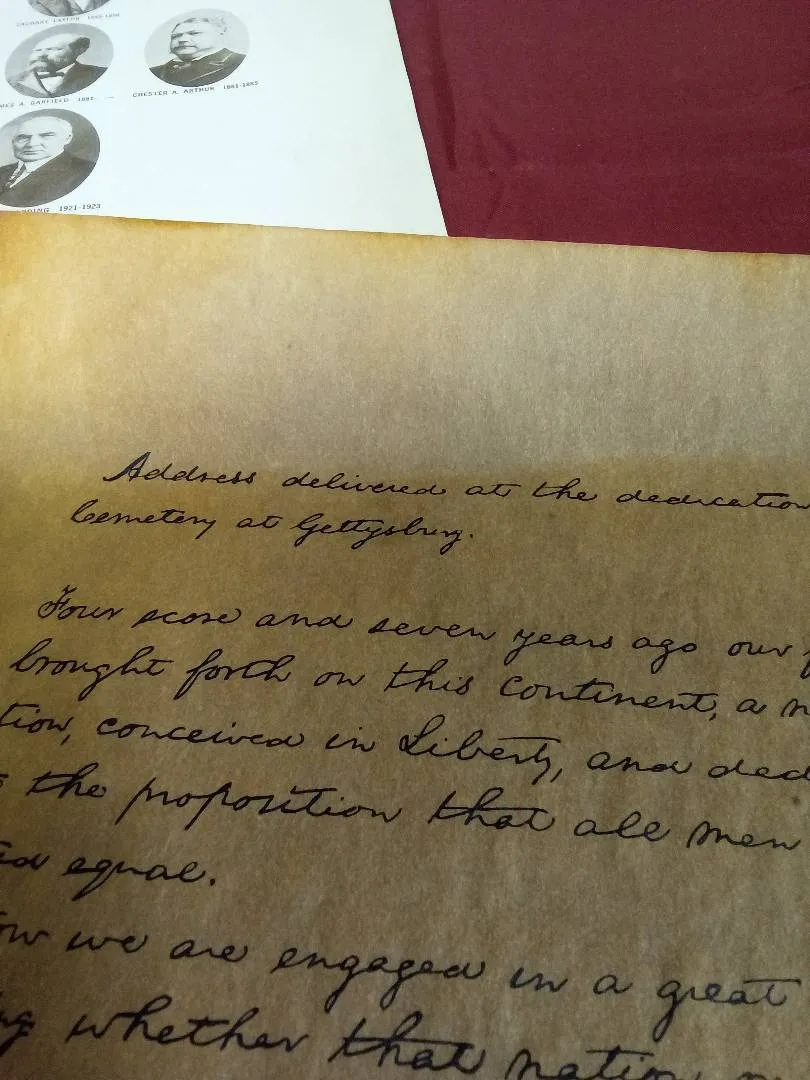 ZACHARY TAYLOR 1849-1850
MES A. GARFIELD 1881
CHESTER A. ARTHUR 1881-1885
DING 1921-1923
Address delivered at the dedication
Cemetery at Gettysburg.
Four score and seven years ago our f
brought forth on this continent, a n
tion, conceived in Liberty, and ded
the proposition that all men
ed equal.
ow we are engaged in a great
ng whether that nation,